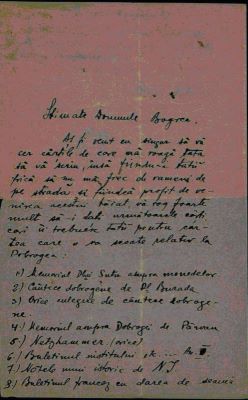 Stimate Domnule Bogrea,
Aş fi venit eu singur să vă
cer cărţile de care mă roagă tata
să vă scriu, însă fiindcă tatii
frică să nu mă frec de oameni de
pe stradă şi fiindcă profit de ve-
nirea acestui băiat, vă rog foarte
mult să-i daţi următoarele cărţi
cari îi trebuesc tatii pentru car-
tea care o va scoate relativ la
Dobrogea:
1) Memoriul Dlui Sutzu asupra monedelor
2) Cântece dobrogene de Dl Burada
3) Orice culegere de cântece dobroge-
ne.
4) Memoriul asupra Dobrogei de Pârvan
5) Netzhammer (orice)
6) Buletinul institutului
7) Notele unui istoric de N. I.
8) Buletinul francez cu darea de seamă